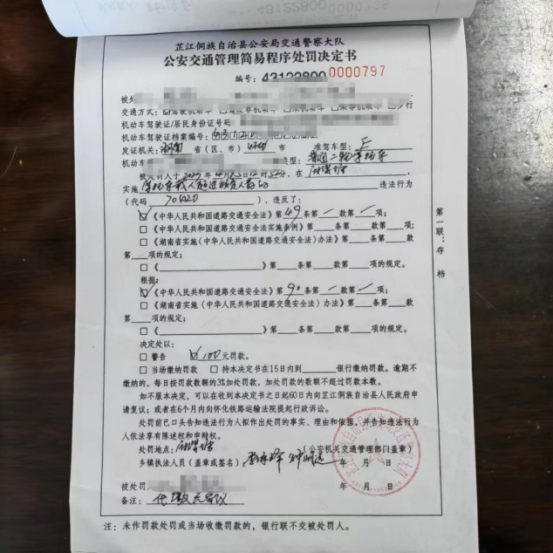 芷江侗族自治县公安局交通警察大队
公安交通管理简易程序处罚决定书
编号:43122800 0000797
被处
交通方式:
机动车驾驶证/居民身份证号码
机动车驾驶证档案编号:
发证机关: 湖南 省(区、市) 准驾车型: E
机动车 型: 普通二轮摩托车
被处罚人于 在
实施 摩托车载人超过核定人数的 违法行为
(代码 ),违反了:
☑《中华人民共和国道路交通安全法》第49条第一款第一项;
□《中华人民共和国道路交通安全法实施条例》第 条第 款第 项;
□《湖南省实施〈中华人民共和国道路交通安全法〉办法》第 条第 款
第 项的规定;
□《 》第 条第 款第 项的规定。
根据:
☑《中华人民共和国道路交通安全法》第90条第一款第一项;
□《湖南省实施〈中华人民共和国道路交通安全法〉办法》第 条第 款
第 项的规定;
□《 》第 条第 款第 项的规定。
决定处以:
□ 警告 ☑ 100元罚款。
□ 当场缴纳罚款 □ 持本决定书在15日内到 银行缴纳罚款。逾期不
缴纳的,每日按罚款数额的3%加处罚款,加处罚款的数额不超过罚款本数。
如不服本决定,可以在收到本决定书之日起60日内向芷江侗族自治县人民政府申
请复议;或者在6个月内向怀化铁路运输法院提起行政诉讼。
处罚前已口头告知违法行为人拟作出处罚的事实、理由和依据,并告知违法行为
人依法享有陈述权和申辩权。
处罚地点:
(公安机关交通管理部门盖章)
乡镇执法人员(盖章或签名): 年 月 日
被处罚 年 月 日
备注:
注:未作罚款处罚或当场收缴罚款的,银行联不交被处罚人。
第一联:存档